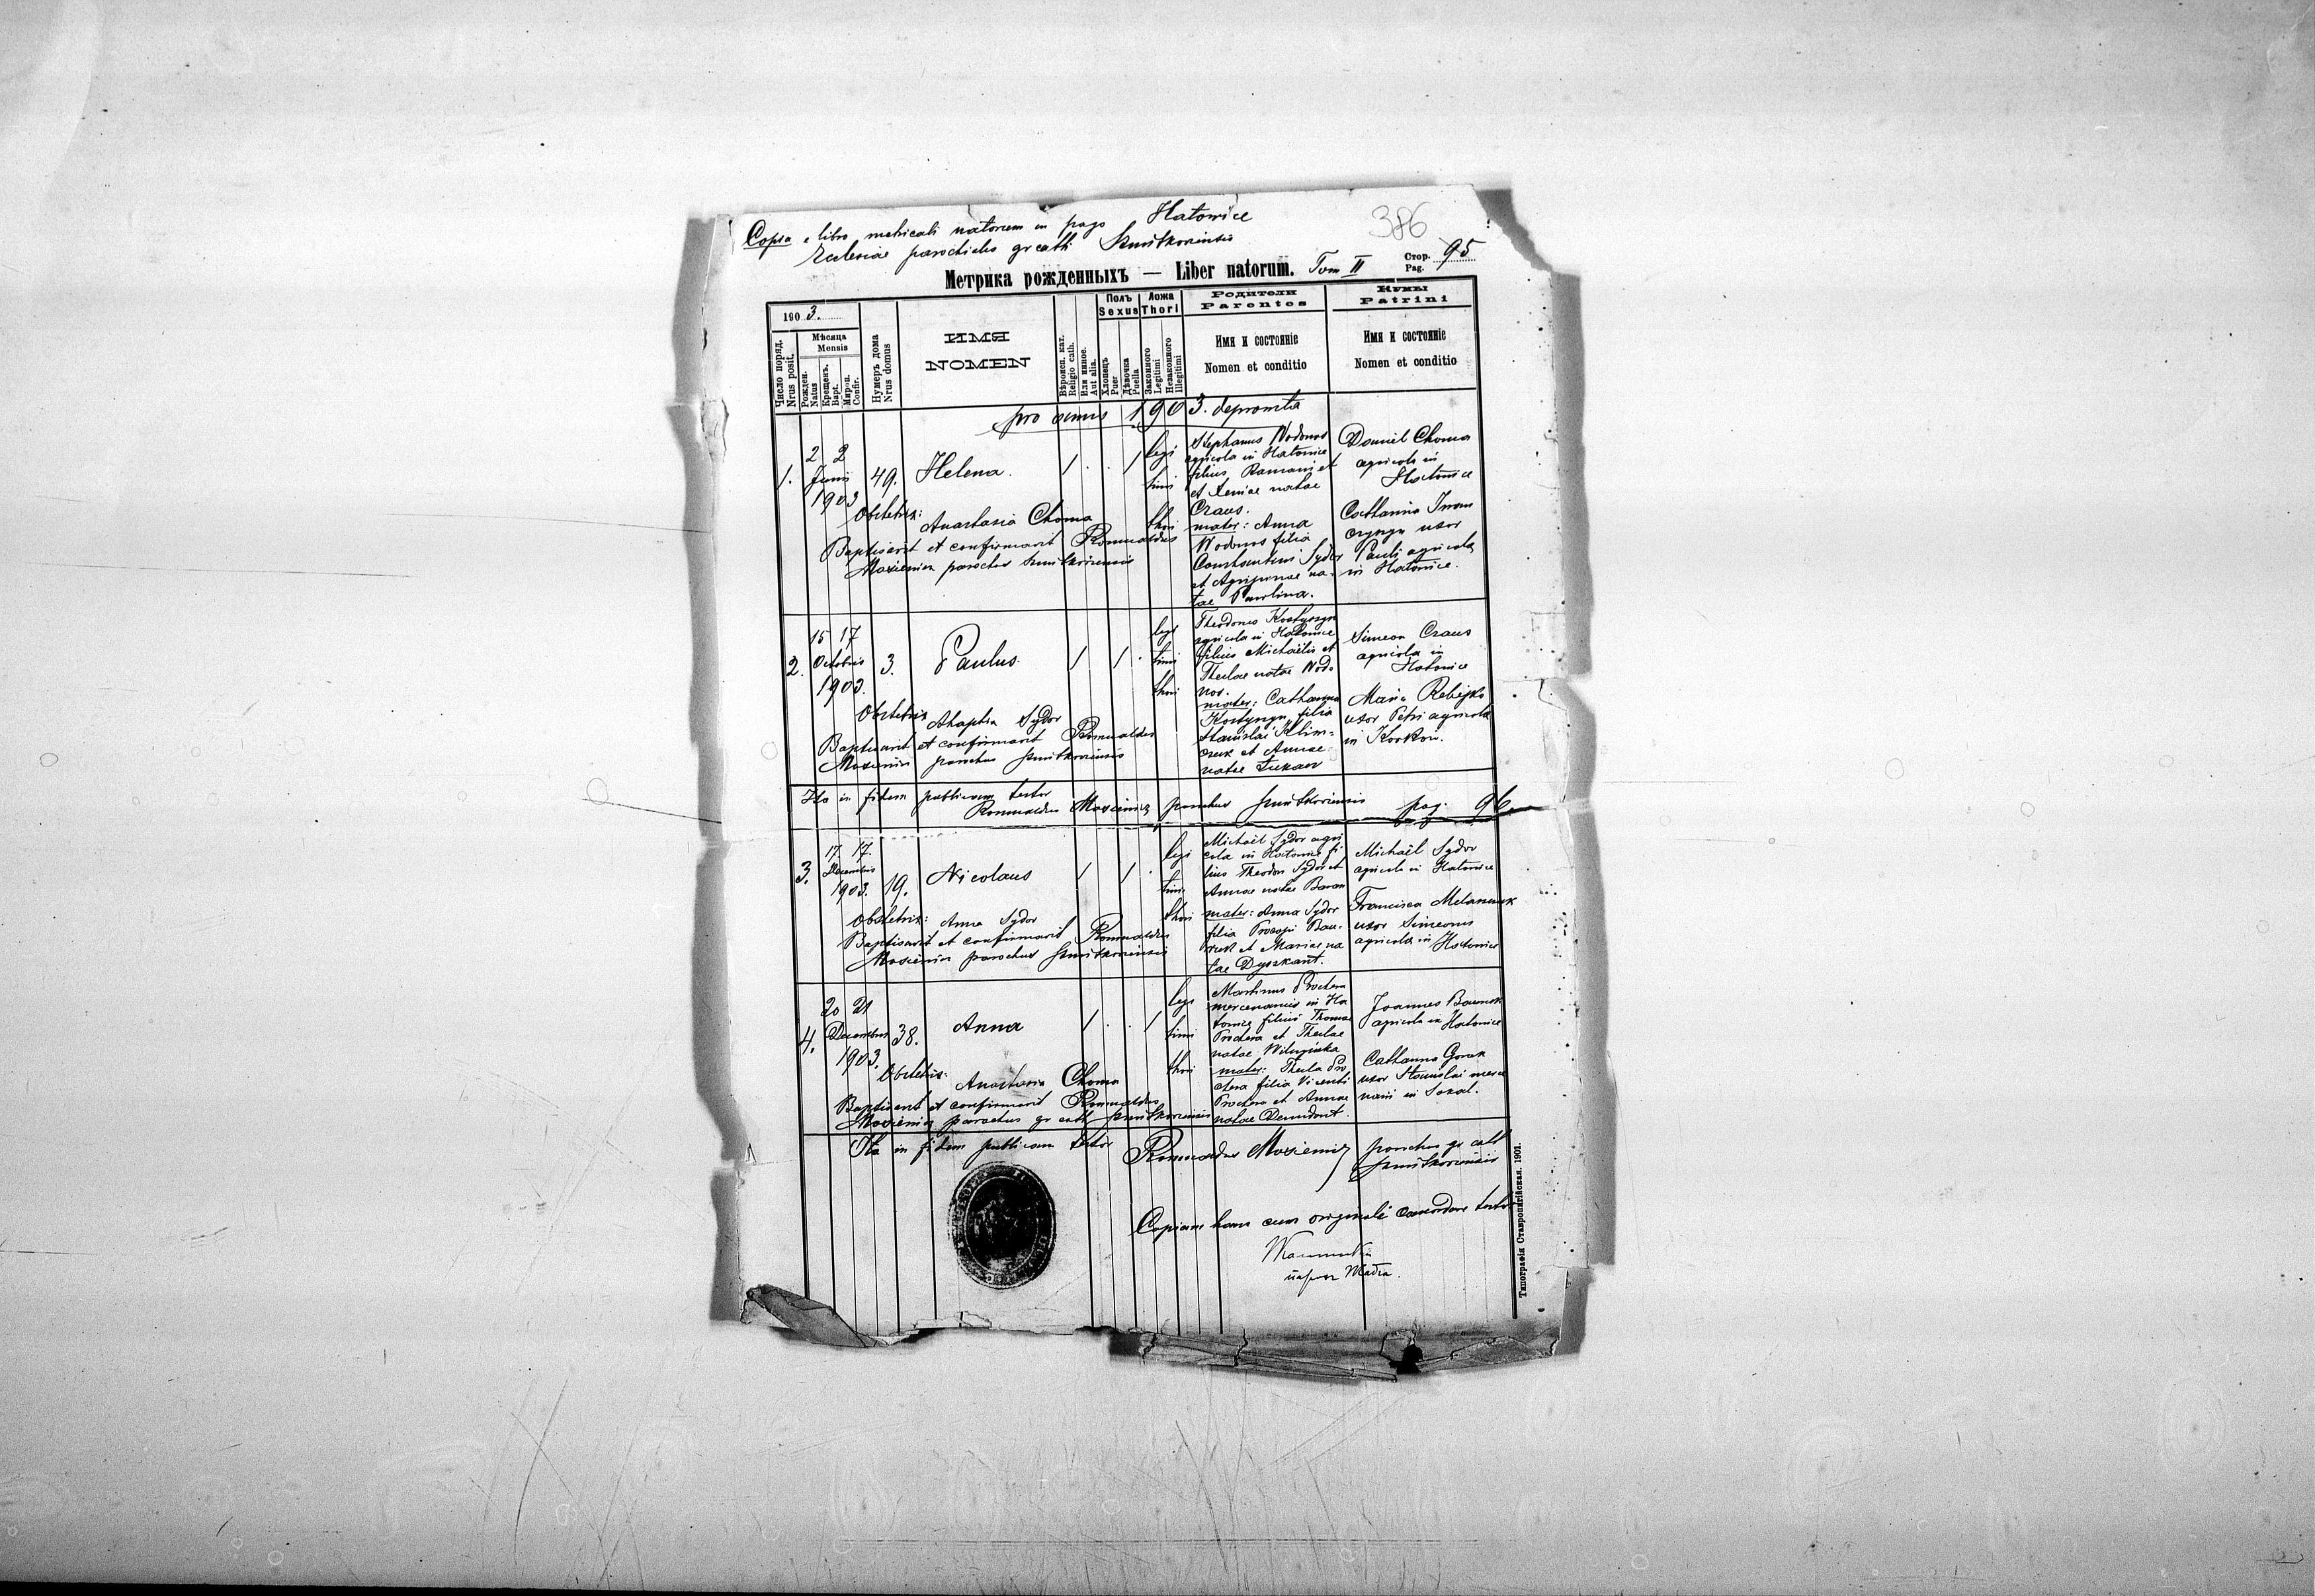 Copia e libro metricali natorum in pago Hatowice
Ecclesiae parochialis gr cath Szmitkoviensis
386
Метрика рожденныхъ — Liber natorum. Tom II
Стор. Pag. 95
190 3.
Число поряд. Nrus posit.
Мѣсяца Mensis
Рожден. Natus
Крещенъ. Bapt.
Мироп. Confir.
Нумеръ дома Nrus domus
ИМЯ
NOMEN
Вѣроисп. кат. Religio cath.
Или иное. Aut alia.
Полъ Sexus
Хлопецъ Puer
Дѣвочка Puella
Ложа Thori
Законного Legitimi
Незаконного Illegitimi
Родители
Parentes
Имя и состояніе
Nomen et conditio
Кумы
Patrini
Имя и состояніе
Nomen et conditio
pro annus 1903. depromta
1.
2 2
Junii
1903
49.
Helena.
legi
timi
thori
Stephanus Wodonos
agricola in Hatowice
filius Romani et
et Xeniae natae
Craus.
mater: Anna
Wodonos filia
Constantini Sydor
et Agripinae na-
tae Paulina.
Daniel Choma
agricola in
Hatowice
Catharina Iwan
uxor
Pauli agricola
in Hatowice.
Obstetrix: Anastasia Choma
Baptisavit et confirmavit Romualdus
Moxiewicz parochus Szmitkoviensis
2.
15 17
Octobris
1903.
3.
Paulus.
legi
timi
thori
Theodorus Kostyszyn
agricola in Hatowice
filius Michaëlis et
Theclae natae Wodo
nos.
mater: Catharina
Kostyszyn filia
Stanislai Klim-
czuk et Annae
natae Łukasz
Simeon Craus
agricola in
Hatowice
Maria Rebejko
uxor Petri agricola
in Korkow.
Obstetrix Ahaphia Sydor
Baptisavit et confirmavit Romualdus
Moxiewicz parochus Szmitkoviensis
Ita in fidem publicam testor
Romualdus Moxiewicz parochus Szmitkoviensis pag. 96
3.
17 17.
Decembris
1903.
19.
Nicolaus
legi
timi
thori
Michaël Sydor agri
cola in Hatowice fi
lius Theodori Sydor et
Annae natae Baran
mater: Anna Sydor
filia Procopi Baw-
czuk et Mariae na
tae Dyszkant.
Michaël Sydor
agricola in Hatowice
Francisca Melanczuk
uxor Simeonis
agricola in Hatowice
Obstetrix: Anna Sydor
Baptisavit et confirmavit Romualdus
Moxiewicz parochus Szmitkoviensis
4.
20 21
Decembris
1903.
38.
Anna
legi
timi
thori
Martinus Prociera
mercenarius in Ha
towice filius Thomae
Prociera et Theclae
natae
mater: Thecla Pro
ciera filia Vicenti
Prociera et Annae
natae
Joannes Bawczuk
agricola in Hatowice
Catharina Gorak
uxor Stanislai merce
narii in Sokal.
Obstetrix: Anastasia Choma
Baptisavit et confirmavit Romualdus
Moxiewicz parochus gr cath Szmitkoviensis
Ita in fidem publicam testor Romualdus Moxiewicz parochus gr cath
Szmitkoviensis
Copiam hanc cum originali concordare testor
Типографія Ставропигійская. 1901.